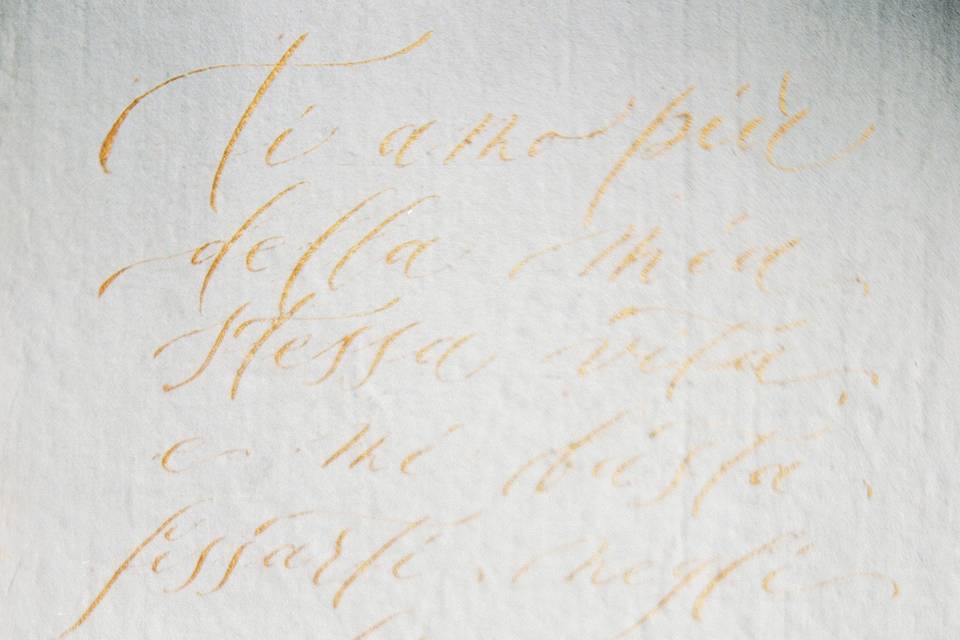 Ti amo più
della mia
stessa vita,
e mi basta
fissarti negli